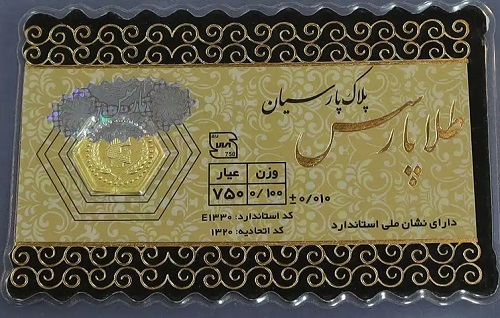 پلاک پارسیان
طلا پارسیس
750
وزن عیار
۰/۱۰۰ ۷۵۰
±۰/۰۱۰
کد استاندارد: E۱۳۳۰
کد اتحادیه: ۱۳۲۰
دارای نشان ملی استاندارد